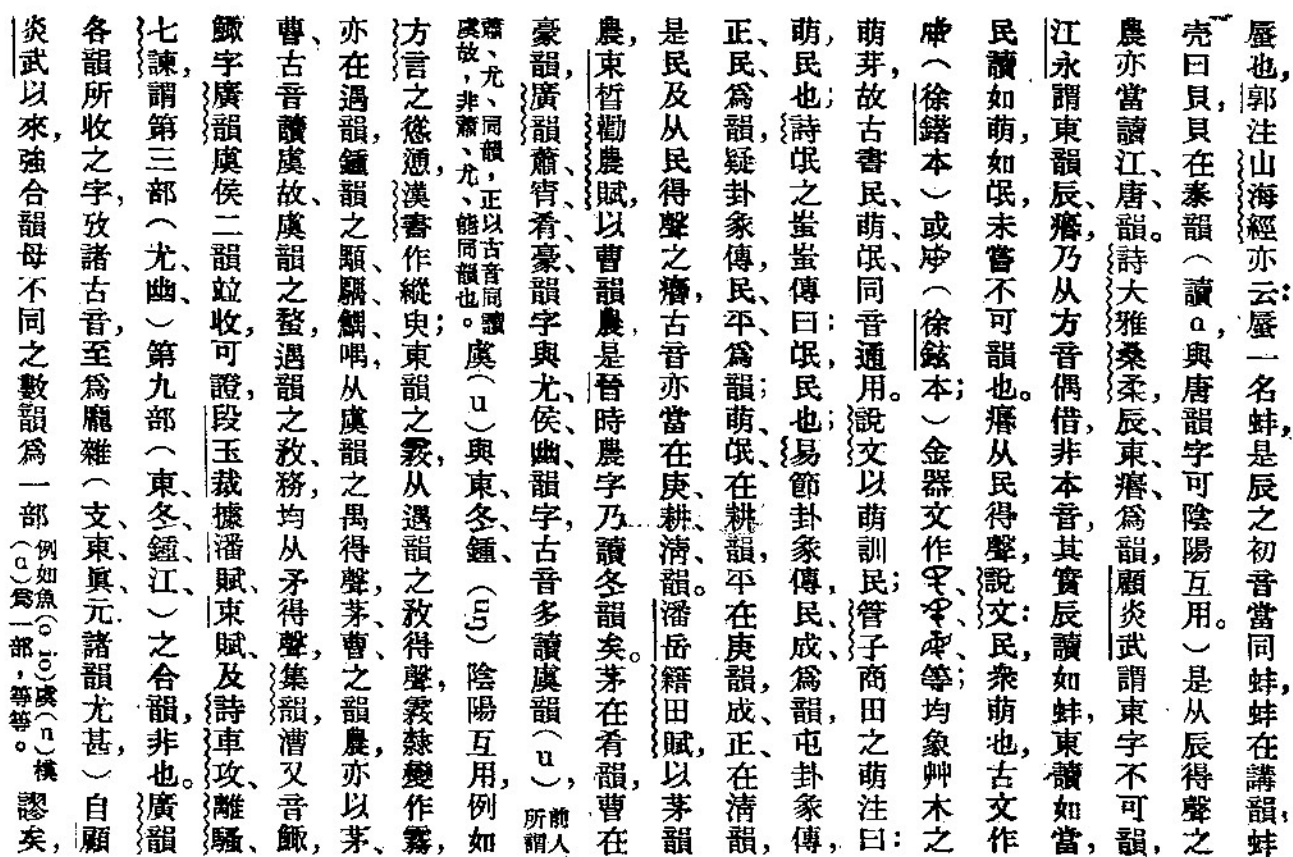 蜃也,郭注山海經亦云:蜃一名蚌,是辰之初音當同蚌,蚌在講韻,蚌
壳曰貝,貝在泰韻(讀a,與唐韻字可陰陽互用。)是从辰得聲之
農亦當讀江、唐韻。詩大雅桑柔,辰、東、瘏、爲韻,顧炎武謂東字不可韻,
江永謂東韻辰、瘏,乃从方音偶借,非本音,其實辰讀如蚌,東讀如當,
民讀如萌,如氓,未嘗不可韻也。瘏从民得聲,說文:民,衆萌也,古文作
(徐鍇本)或(徐鉉本;)金器文作、、等;均象艸木之
萌芽,故古書民、萌、氓、同音通用。說文以萌訓民;管子商田之萌注曰:
萌,民也;詩氓之蚩蚩、傳曰:氓,民也;易節卦象傳,民、成、爲韻,屯卦象傳,
正、民、爲韻,疑卦象傳,民、平、爲韻;萌、氓、在耕韻,平在庚韻,成、正、在清韻,
是民及从民得聲之瘏,古音亦當在庚、耕、清、韻。潘岳籍田賦,以茅韻
農,束晳勸農賦,以曹韻農,是晉時農字乃讀冬韻矣。茅在肴韻,曹在
豪韻,廣韻蕭、宵、肴、豪、韻字與尤、侯、幽、韻字,古音多讀虞韻(u),前人所謂
蕭、尤、同韻,正以古音同讀虞故,非蕭、尤、能同韻也。虞(u)與東、冬、鍾、(uŋ)陰陽互用,例如
方言之慫慂,漢書作縱臾;東韻之霧,从遇韻之敄得聲,霧隸變作霧,
亦在遇韻,鍾韻之顒、鰅、喁,从虞韻之禺得聲,茅、曹、之韻農,亦以茅、
曹、古音讀虞故、虞韻之蝥,遇韻之敄、務,均从矛得聲,集韻,漕又音鯫,
鯫字廣韻虞侯二韻竝收,可證,段玉裁據潘賦、束賦、及詩車攻、離騷、
七諫,謂第三部(尤、幽、)第九部(東、冬、鍾、江、)之合韻,非也。廣韻
各韻所收之字,攷諸古音,至爲龐雜(支、東、眞、元諸韻尤甚,)自顧
炎武以來,強合韻母不同之數韻爲一部(例如魚(o io)虞(u)模(u)爲一部,等等。謬矣,